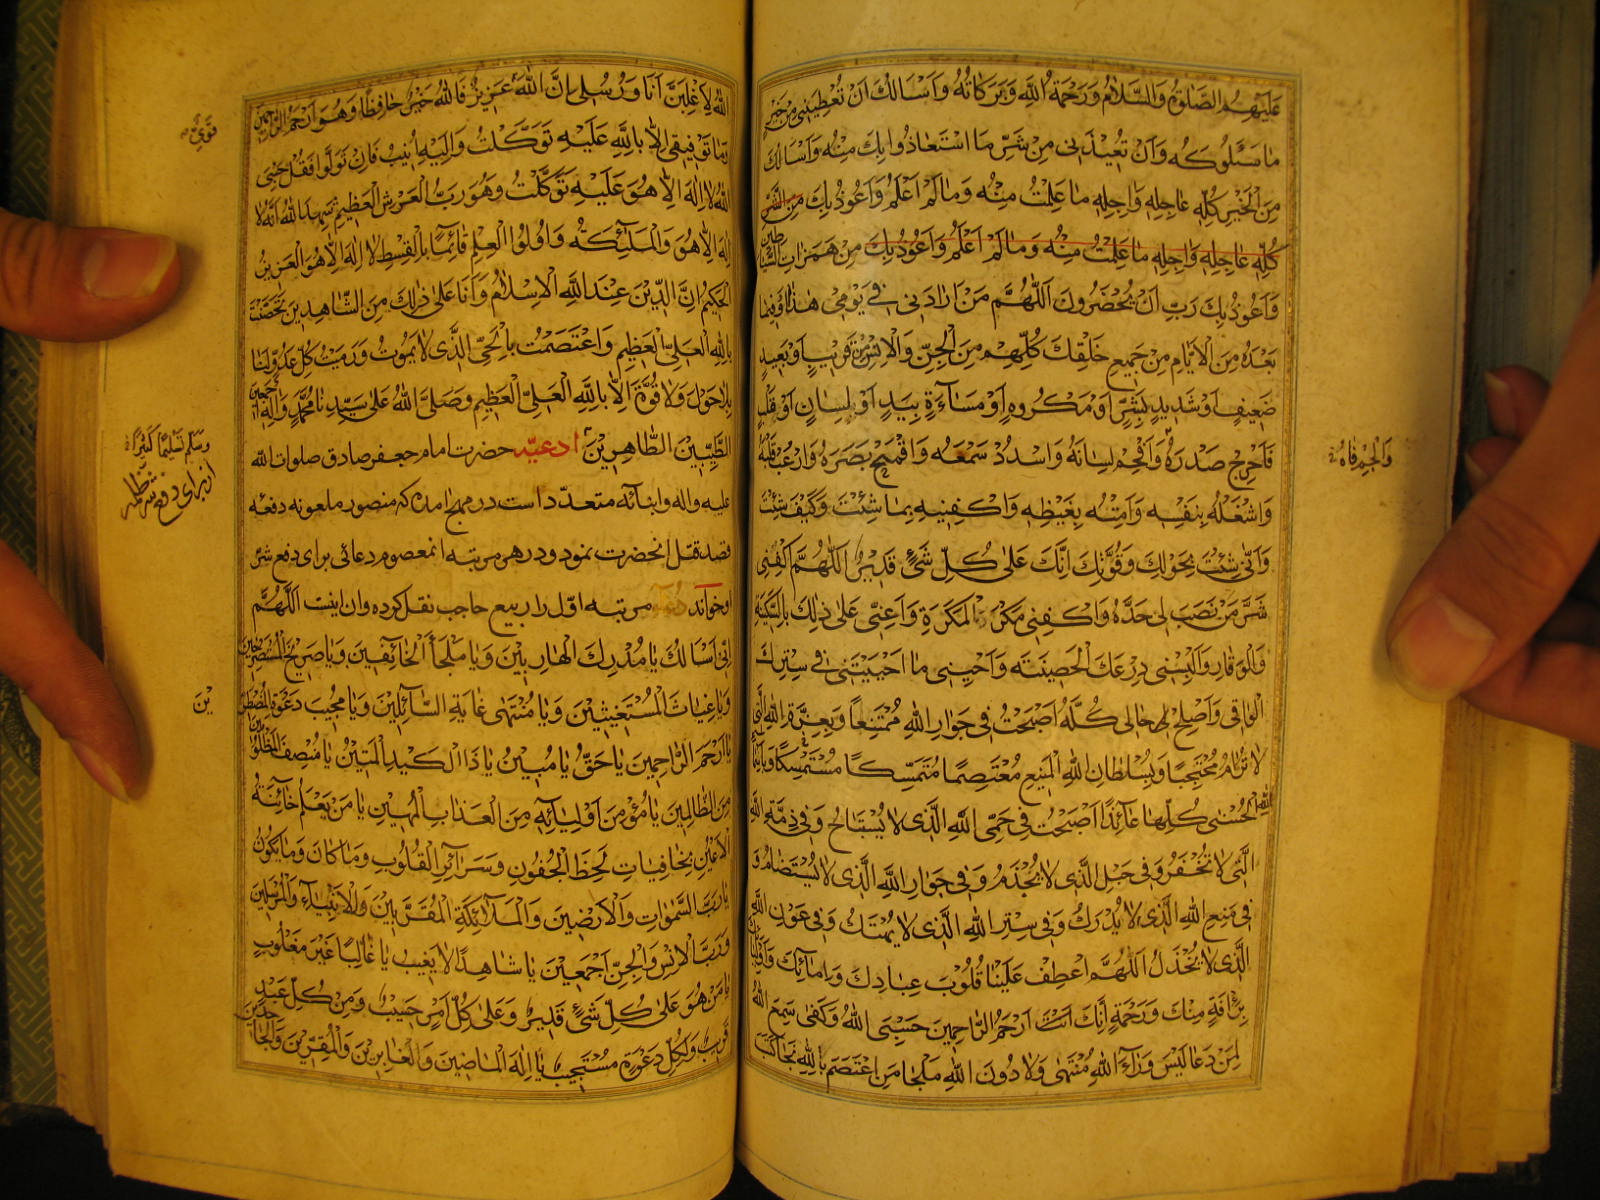 عَلَيْهِمُ الصَّلٰوةُ وَالسَّلَامُ وَرَحْمَةُ اللّٰهِ وَبَرَكَاتُهُ وَاَسْاَلُكَ اَنْ تُعْطِيَنِي مِنْ خَيْرِ
مَا سَئَلُوكَ وَاَنْ تُعِيذَنِي مِنْ شَرِّ مَا اسْتَعَاذُوا بِكَ مِنْهُ وَاَسْاَلُكَ
مِنَ الْخَيْرِ كُلِّهِ عَاجِلِهِ وَاجِلِهِ مَا عَلِمْتُ مِنْهُ وَمَا لَمْ اَعْلَمْ وَاَعُوذُ بِكَ مِنَ الشَّرِّ
كُلِّهِ عَاجِلِهِ وَاجِلِهِ مَا عَلِمْتُ مِنْهُ وَمَا لَمْ اَعْلَمْ وَاَعُوذُ بِكَ مِنْ هَمَزَاتِ الشَّيَاطِينِ
وَاَعُوذُ بِكَ رَبِّ اَنْ يَحْضُرُونَ اَللّٰهُمَّ مَنْ اَرَادَنِي فِي يَوْمِي هٰذَا وَفِيمَا
بَعْدَهُ مِنَ الْاَيَّامِ مِنْ جَمِيعِ خَلْقِكَ كُلِّهِمْ مِنَ الْجِنِّ وَالْاِنْسِ قَرِيبٍ اَوْ بَعِيدٍ
ضَعِيفٍ اَوْ شَدِيدٍ بِشَرٍّ اَوْ مَكْرُوهٍ اَوْ مَسَآءَةٍ بِيَدٍ اَوْ بِلِسَانٍ اَوْ قَلْبٍ
فَاَحْرِجْ صَدْرَهُ وَاَفْحِمْ لِسَانَهُ وَاسْدُدْ سَمْعَهُ وَاقْمَحْ بَصَرَهُ وَارْعَبْ قَلْبَهُ
وَالْجِمْ فَاهُ
وَاشْغَلْهُ بِنَفْسِهِ وَاَمِتْهُ بِغَيْظِهِ وَاكْفِنِيهِ بِمَا شِئْتَ وَكَيْفَ شِئْتَ
وَاَنّٰى شِئْتَ بِحَوْلِكَ وَقُوَّتِكَ اِنَّكَ عَلٰى كُلِّ شَيْءٍ قَدِيرٌ اَللّٰهُمَّ اكْفِنِي
شَرَّ مَنْ نَصَبَ لِي حَدَّهُ وَاكْفِنِي مَكْرَ الْمَكَرَةِ وَاَعِنِّي عَلٰى ذٰلِكَ بِالسَّكِينَةِ
وَالْوَقَارِ وَاَلْبِسْنِي دِرْعَكَ الْحَصِينَةَ وَاَحْيِنِي مَا اَحْيَيْتَنِي فِي سِتْرِكَ
الْوَاقِي وَاَصْلِحْ لِي حَالِي كُلَّهُ اَصْبَحْتُ فِي جِوَارِ اللّٰهِ مُمْتَنِعاً وَبِعِزَّةِ اللّٰهِ الَّتِي
لَا تُرَامُ مُحْتَجِباً وَبِسُلْطَانِ اللّٰهِ الْمَنِيعِ مُعْتَصِماً مُتَمَسِّكاً وَبِاَسْمَآءِ
اللّٰهِ الْحُسْنٰى كُلِّهَا عَآئِذاً اَصْبَحْتُ فِي حِمَى اللّٰهِ الَّذِي لَا يُسْتَبَاحُ وَفِي ذِمَّةِ اللّٰهِ
الَّتِي لَا تُخْفَرُ وَفِي حَبْلِ الَّذِي لَا يُجْذَمُ وَفِي جِوَارِ اللّٰهِ الَّذِي لَا يُسْتَضَامُ وَ
فِي مَنْعِ اللّٰهِ الَّذِي لَا يُدْرَكُ وَفِي سِتْرِ اللّٰهِ الَّذِي لَا يُهْتَكُ وَفِي عَوْنِ اللّٰهِ
الَّذِي لَا يُخْذَلُ اَللّٰهُمَّ اعْطِفْ عَلَيْنَا قُلُوبَ عِبَادِكَ وَاِمَآئِكَ وَاَوْلِيَآئِكَ
بِرَأْفَةٍ مِنْكَ وَرَحْمَةٍ اِنَّكَ اَنْتَ اَرْحَمُ الرَّاحِمِينَ حَسْبِيَ اللّٰهُ وَكَفٰى سَمِعَ اللّٰهُ
لِمَنْ دَعَا لَيْسَ وَرَآءَ اللّٰهِ مُنْتَهٰى وَلَا دُونَ اللّٰهِ مَلْجَأ مَنِ اعْتَصَمَ بِاللّٰهِ نَجَا كَتَبَ
اللّٰهُ لَاَغْلِبَنَّ اَنَا وَرُسُلِي اِنَّ اللّٰهَ عَزِيزٌ فَاللّٰهُ خَيْرٌ حَافِظاً وَهُوَ اَرْحَمُ الرَّاحِمِينَ
قَوِيٌّ
وَمَا تَوْفِيقِي اِلَّا بِاللّٰهِ عَلَيْهِ تَوَكَّلْتُ وَاِلَيْهِ اُنِيبُ فَاِنْ تَوَلَّوْا فَقُلْ حَسْبِيَ
اللّٰهُ لَا اِلٰهَ اِلَّا هُوَ عَلَيْهِ تَوَكَّلْتُ وَهُوَ رَبُّ الْعَرْشِ الْعَظِيمِ شَهِدَ اللّٰهُ اَنَّهُ لَا
اِلٰهَ اِلَّا هُوَ وَالْمَلٰئِكَةُ وَاُولُوا الْعِلْمِ قَآئِماً بِالْقِسْطِ لَا اِلٰهَ اِلَّا هُوَ الْعَزِيزُ
الْحَكِيمُ اِنَّ الدِّينَ عِنْدَ اللّٰهِ الْاِسْلَامُ وَاَنَا عَلٰى ذٰلِكَ مِنَ الشَّاهِدِينَ تَحَصَّنْتُ
بِاللّٰهِ الْعَلِيِّ الْعَظِيمِ وَاعْتَصَمْتُ بِالْحَيِّ الَّذِي لَا يَمُوتُ وَرَمَيْتُ كُلَّ عَدُوٍّ لَنَا
بِلَا حَوْلَ وَلَا قُوَّةَ اِلَّا بِاللّٰهِ الْعَلِيِّ الْعَظِيمِ وَصَلَّى اللّٰهُ عَلٰى سَيِّدِنَا مُحَمَّدٍ وَآلِهِ اَجْمَعِينَ
الطَّيِّبِينَ الطَّاهِرِينَ ادعيّه حضرت امام جعفر صادق صلوات الله
وَسَلَّمَ تَسْلِيماً كَثِيراً
از برای دفع شر
عليه واله وابنائه متعدّد است در مهج امده كه منصور ملعون نه دفعه
قصد قتل انحضرت نمود ودر هر مرتبه انمعصوم دعائی برای دفع شر
او خوانده مرتبه اوّل را ربيع حاجب نقل كرده وان اينست اَللّٰهُمَّ
اِنِّي اَسْاَلُكَ يَا مُدْرِكَ الْهَارِبِينَ وَيَا مَلْجَأَ الْخَآئِفِينَ وَيَا صَرِيخَ الْمُسْتَصْرِخِينَ
وَيَا غِيَاثَ الْمُسْتَغِيثِينَ وَيَا مُنْتَهٰى غَايَةِ السَّآئِلِينَ وَيَا مُجِيبَ دَعْوَةِ الْمُضْطَرِّينَ
يَا اَرْحَمَ الرَّاحِمِينَ يَا حَقُّ يَا مُبِينُ يَا ذَا الْكَيْدِ الْمَتِينُ يَا مُنْصِفَ الْمَظْلُومِينَ
مِنَ الظَّالِمِينَ يَا مُؤْمِنَ اَوْلِيَآئِهِ مِنَ الْعَذَابِ الْمُهِينِ يَا مَنْ يَعْلَمُ خَآئِنَةَ
الْاَعْيُنِ بِخَافِيَاتِ لَحْظِ الْجُفُونِ وَسَرَآئِرِ الْقُلُوبِ وَمَا كَانَ وَمَا يَكُونُ
يَا رَبَّ السَّمٰوَاتِ وَالْاَرَضِينَ وَالْمَلَآئِكَةِ الْمُقَرَّبِينَ وَالْاَنْبِيَآءِ وَالْمُرْسَلِينَ
وَرَبَّ الْاِنْسِ وَالْجِنِّ اَجْمَعِينَ يَا شَاهِداً لَا يَغِيبُ يَا غَالِباً غَيْرَ مَغْلُوبٍ
يَا مَنْ هُوَ عَلٰى كُلِّ شَيْءٍ قَدِيرٌ وَعَلٰى كُلِّ اَمْرٍ حَسِيبٌ وَمِنْ كُلِّ عَبْدٍ
قَرِيبٌ وَلِكُلِّ دَعْوَةٍ مُسْتَجِيبٌ يَا اِلٰهَ الْمَاضِينَ وَالْغَابِرِينَ وَالْمُقِرِّينَ وَالْجَاحِدِينَ